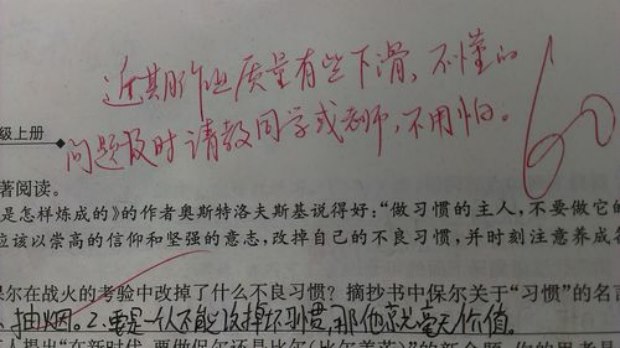 近期作业质量有些下滑,不懂的
问题及时请教同学或老师,不用怕。
级上册
著阅读。
是怎样炼成的》的作者奥斯特洛夫斯基说得好:“做习惯的主人,不要做它的
应该以崇高的信仰和坚强的意志,改掉自己的不良习惯,并时刻注意养成
保尔在战火的考验中改掉了什么不良习惯?摘抄书中保尔关于“习惯”的名言
抽烟。2.要是一个人不能改掉坏习惯,那他就毫无价值。
人提出“在新时代,要做保尔还是比尔(比尔·盖茨)”的新命题,你的思考是